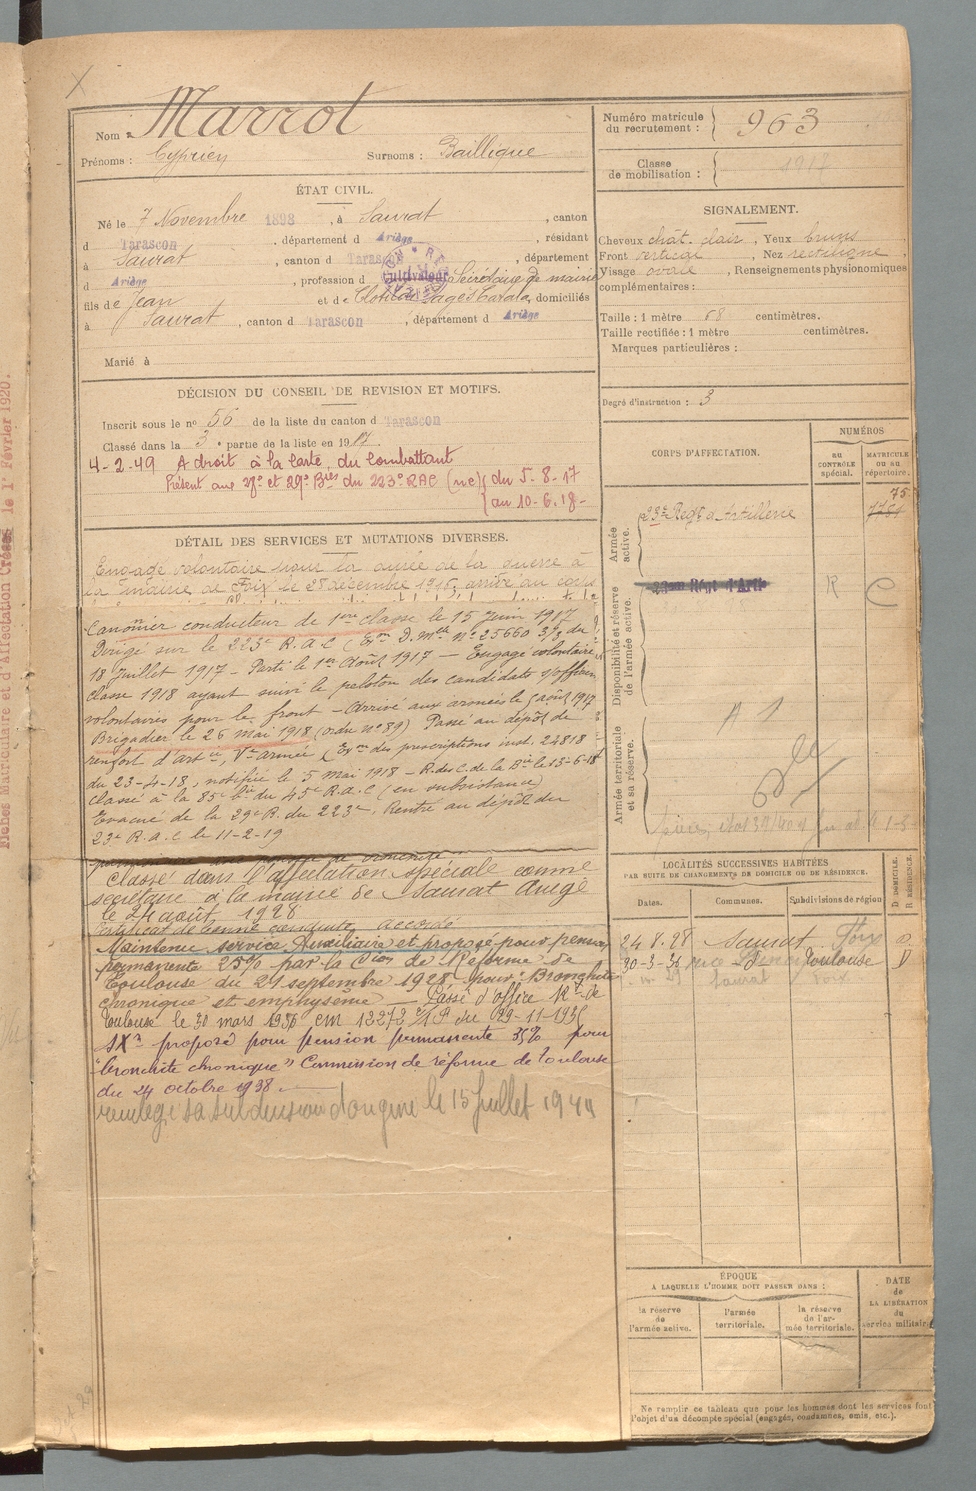 Nom : Marrot
Prénoms : Cyprien Surnoms : Baillique
Numéro matricule du recrutement : 963
Classe de mobilisation : 1917
ÉTAT CIVIL.
Né le 7 Novembre 1898, à Saurat, canton
d Tarascon, département d Ariège, résidant
à Saurat, canton d Tarascon, département
d Ariège, profession d Cultivateur Secrétaire de mairie
fils de Jean et de Clotilde, domiciliés
à Saurat, canton d Tarascon, département d Ariège
Marié à
SIGNALEMENT.
Cheveux chât. clair, Yeux bruns
Front vertical, Nez rectiligne
Visage ovale, Renseignements physionomiques
complémentaires :
Taille : 1 mètre 68 centimètres.
Taille rectifiée : 1 mètre centimètres.
Marques particulières :
Degré d'instruction : 3
DÉCISION DU CONSEIL DE REVISION ET MOTIFS.
Inscrit sous le n° 56 de la liste du canton d Tarascon
Classé dans la 3e partie de la liste en 1917.
4-2-49 A droit à la Carte du Combattant
Présent aux et 29e Bies du 223e RAC (nc) du 5-8-17
au 10-6-18-
DÉTAIL DES SERVICES ET MUTATIONS DIVERSES.
Engagé volontaire pour la durée de la guerre à
la mairie de Foix le 28 décembre 1916, arrivé au corps
Canonnier conducteur de 1ere classe le 15 Juin 1917
Dirigé sur le 223e R.A.C (Exon D.Mlle N° 25660 3/3 du
18 Juillet 1917 - Parti le 1er Août 1917 - Engagé volontaire
classe 1918 ayant suivi le peloton des candidats s/officiers
volontaires pour le front - Arrivé aux armées le 5 août 1917
Brigadier le 26 Mai 1918 (ordre n° 89) Passé au dépôt de
renfort d'artie, Ve armée (Exon des prescriptions inst. 24818
du 23-4-18, notifiée le 5 Mai 1918 - R. des C. de la Bie le 13-6-18
Classé à la 85e bie du 45e R.A.C (en subsistance)
Evacué de la 29e B. du 223e. Rentré au dépôt du
23e R.A.C le 11-2-19
Classé dans l'affectation spéciale comme
secrétaire à la mairie de Saurat Ariège
le 24 août 1928
Certificat de bonne conduite accordé
Maintenu service Auxiliaire et proposé pour pension
permanente 25% par la Cion de Réforme de
Toulouse du 21 septembre 1928 pour: Bronchite
chronique et emphysème - Passé d'office Rt de
Toulouse le 30 mars 1936 cm 12272 du 29-11-1935
SXre proposé pour pension permanente 35% pour
"bronchite chronique" Commission de réforme de Toulouse
du 24 octobre 1938.
sa subdivision d'origine le 15 Juillet 1941
CORPS D'AFFECTATION.
NUMÉROS
AU CONTRÔLE spécial.
MATRICULE OU AU répertoire.
Armée active.
23e Regt d'Artillerie
75
Disponibilité et réserve de l'armée active.
23em Régt d'Artie
R
C
Armée territoriale et sa réserve.
A 1
LOCALITÉS SUCCESSIVES HABITÉES
PAR SUITE DE CHANGEMENTS DE DOMICILE OU DE RÉSIDENCE.
Dates. Communes. Subdivisions de région
D. DOMICILE. R. RÉSIDENCE.
24 8.28 Saurat Foix
30-3-36 Toulouse D
Saurat Foix
ÉPOQUE
A LAQUELLE L'HOMME DOIT PASSER DANS :
la réserve de l'armée active.
l'armée territoriale.
la réserve de l'armée territoriale.
DATE de LA LIBÉRATION du service militaire
Ne remplir ce tableau que pour les hommes dont les services font
l'objet d'un décompte spécial (engagés, condamnés, omis, etc.).